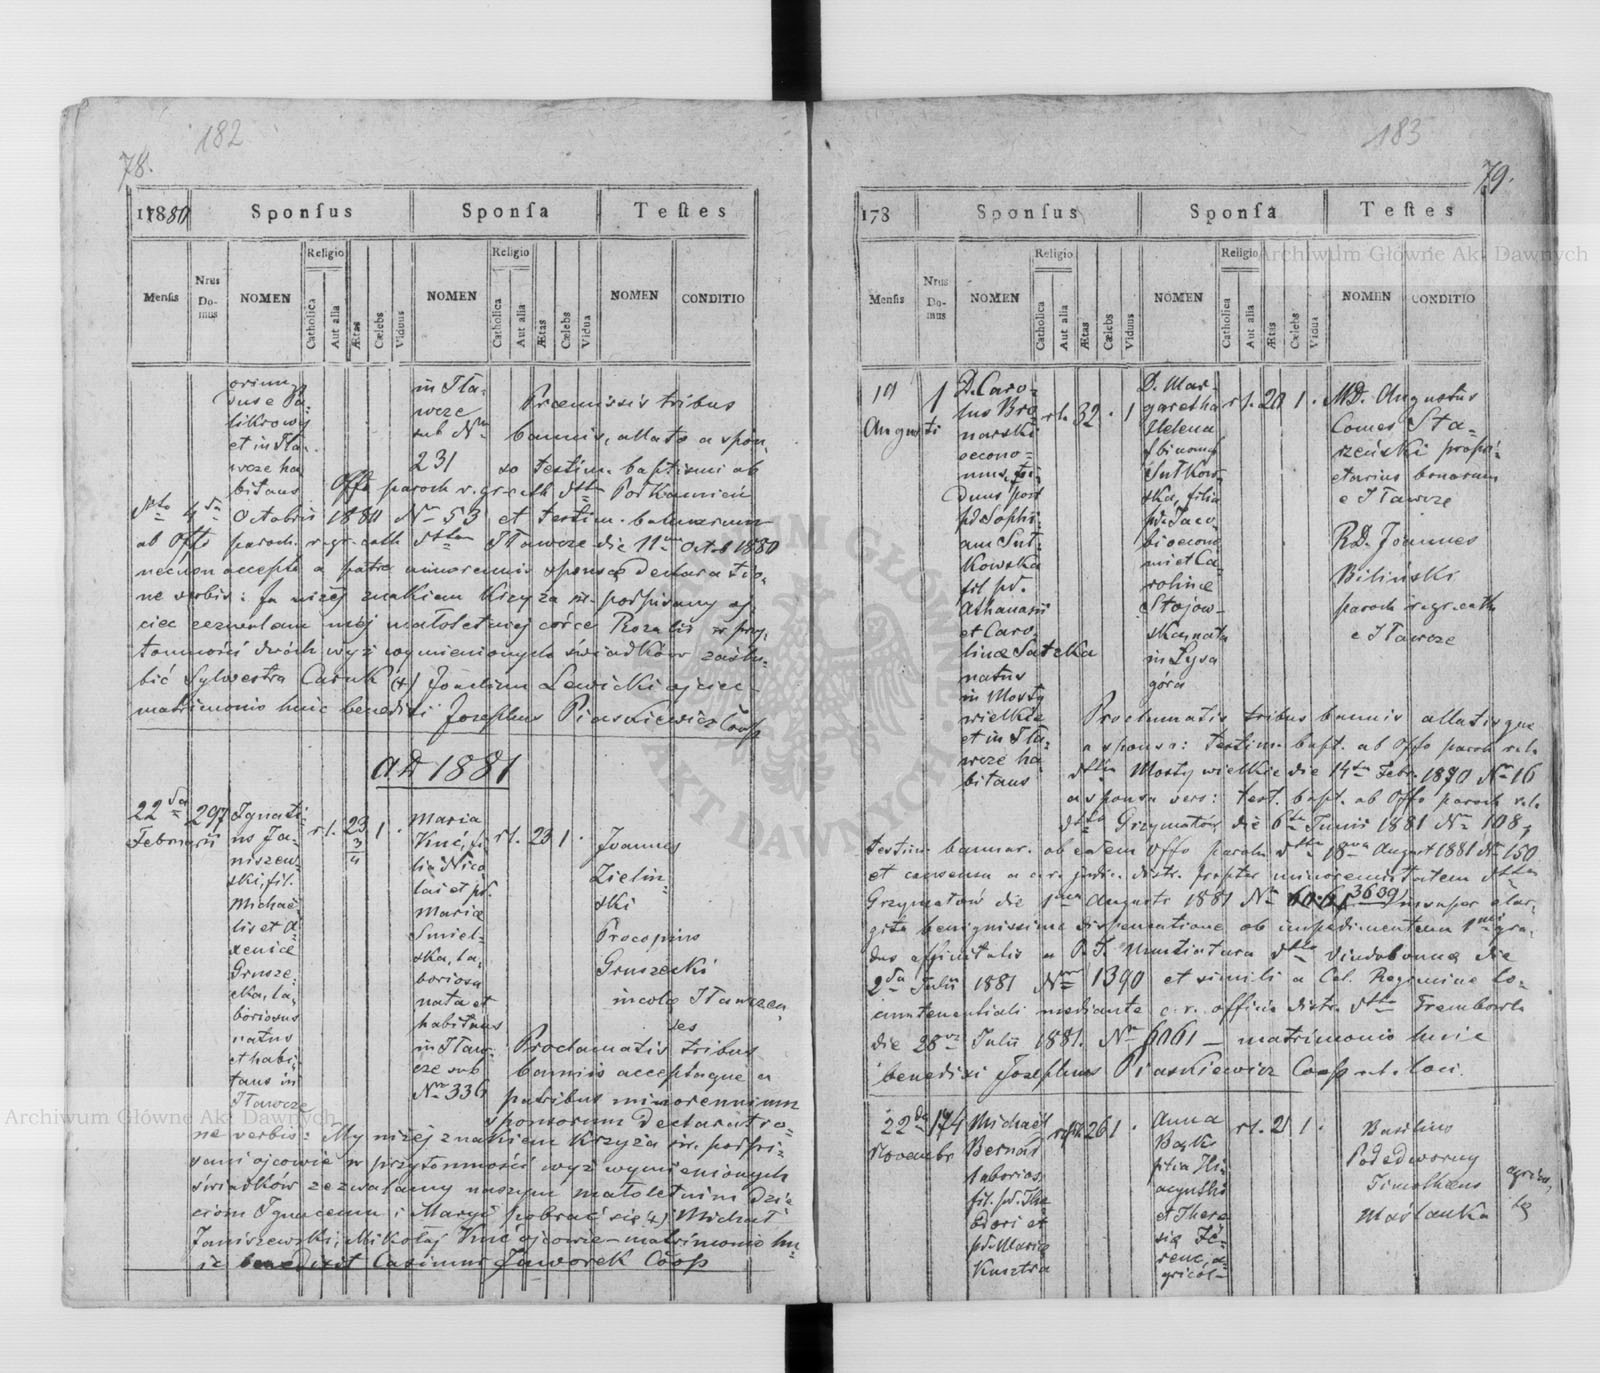 182
78.
1880 Sponsus Sponsa Testes
Mensis Nrus Domus NOMEN Religio Catholica Aut alia Ætas Cælebs Viduus NOMEN Religio Catholica Aut alia Ætas Cælebs Vidua NOMEN CONDITIO
et in Ita-
weze ha
bitans
in Ita-
weze
sub Nro
231
Præmissis tribus
bannis, allato a spon-
so testim. baptismi ab
Offo paroch r. gr. cath dtto Podkamień
dto 4ta Octobris 1880 Nro 53 et testim. bannorum
ab Offo paroch. r. gr. cath dtto Itawcze die 11ma Octob 1880
necnon accepta a patre minorennis sponsæ declaratio-
ne verbis: Ja niżej znakiem krzyża św. podpisany oj-
ciec zezwalam mej małoletniej córce Rozalii w przy-
tomności dwóch wyż wymienionych świadków zaślu-
bić Sylwestra Caruk (+) Joachim Lewicki ojciec-
matrimonio huic benedixi Josephus Piaskiewicz Coop
AD 1881
22da
Februarii
297
Ignati-
us Ja-
niszew-
ski, fil.
Michae-
lis et A-
xenice
Grusze-
cka, la-
boriosus
natus
et habi-
tans in
Itawcze
r. l. 23 3/4 1 .
Maria
Kuć, fi-
lia Nico
lai et pd.
Mariæ
Smiel-
ska, la-
boriosa
nata et
habitans
in Itaw-
cze sub
Nro 336
r l. 23 1 .
Joannes
Zielin-
ski
Procopius
Gruszecki
incolæ Itawczen
ses
Proclamatis tribus
bannis acceptaque a
patribus minorennium
sponsorum declaratio-
ne verbis: My niżej znakiem krzyża św. podpi-
sani ojcowie w przytomności wyż wymienionych
świadków zezwalamy naszym małoletnim dzie
ciom Ignacemu i Maryi pobrać się (+) Michał
Janiszewski, Mikołaj Kuć ojcowie - matrimonio hu-
ic benedixit Casimir Jaworek Coop
183
79.
178 Sponsus Sponsa Testes
Mensis Nrus Domus NOMEN Religio Catholica Aut alia Ætas Cælebs Viduus NOMEN Religio Catholica Aut alia Ætas Cælebs Vidua NOMEN CONDITIO
19
Augusti
1
D. Caro-
lus Bro
narski
oecono-
mus, vi-
duus post
pd Sophi-
am Sut-
kowska
fil. pd.
Athanasii
et Caro-
linæ Satzka
natus
in Mosty
wielkie
et in Ita-
weze ha-
bitans
r l. 32 . 1
D. Mar-
garetha
Helena
binom
Sutkow-
ska, filia
pd. Jaco-
bi oecono
mi et Ca-
rolinæ
Stojow-
ska, nata
in Łysa
góra
r l. 20 1 .
MD. Augustus
Comes Sta-
rzeński propri-
etarius bonorum
e Itawcze
RD. Joannes
Biliński
paroch r. gr. cath
e Itawcze
Proclamatis tribus bannis allatisque
a sponso: testim. bapt. ab Offo paroch r. l.
dtto Mosty wielkie die 14ta Febr. 1870 Nro 16
a sponsa vero: test. bapt. ab Offo paroch r. l.
dtto Grzymałów die 6ta Junii 1881 Nro 108,
testim. bannor. ab eodem Offo paroch dtto 18va August 1881 Nro 150
et consensu a c. r. judic. distr. propter minorennitatem dtto
Grzymałów die 1ma Augusti 1881 Nro 3639, insuper elar-
gita benignissime dispensatione ob impedimentum 1mi gra-
dus affinitatis a P. T. Nuntiatura dtto Vindobonna die
2da Julii 1881 Nro 1390 et simili a Cel. Regimine lo-
cumtenentiali mediante c. r. officio distr. dtto Trembowla
die 28va Julii 1881. Nro 6061 - matrimonio huic
benedixi Josephus Piaskiewicz Coop r. l. loci.
22da
Novembr
174
Michael
Bernas
laborios.
fil. pd. The
odori et
pd. Mariæ
Kusztra
26 1 .
Anna
Bąk
filia Hi-
acynthi
et There
siæ
agricol-
r l. 21 1 .
Basilius
Podedworny
Timotheus
Maślanka
agricolæ
Archiwum Główne Akt Dawnych
Archiwum Główne Akt Dawnych
ARCHIWUM GŁÓWNE AKT DAWNYCH